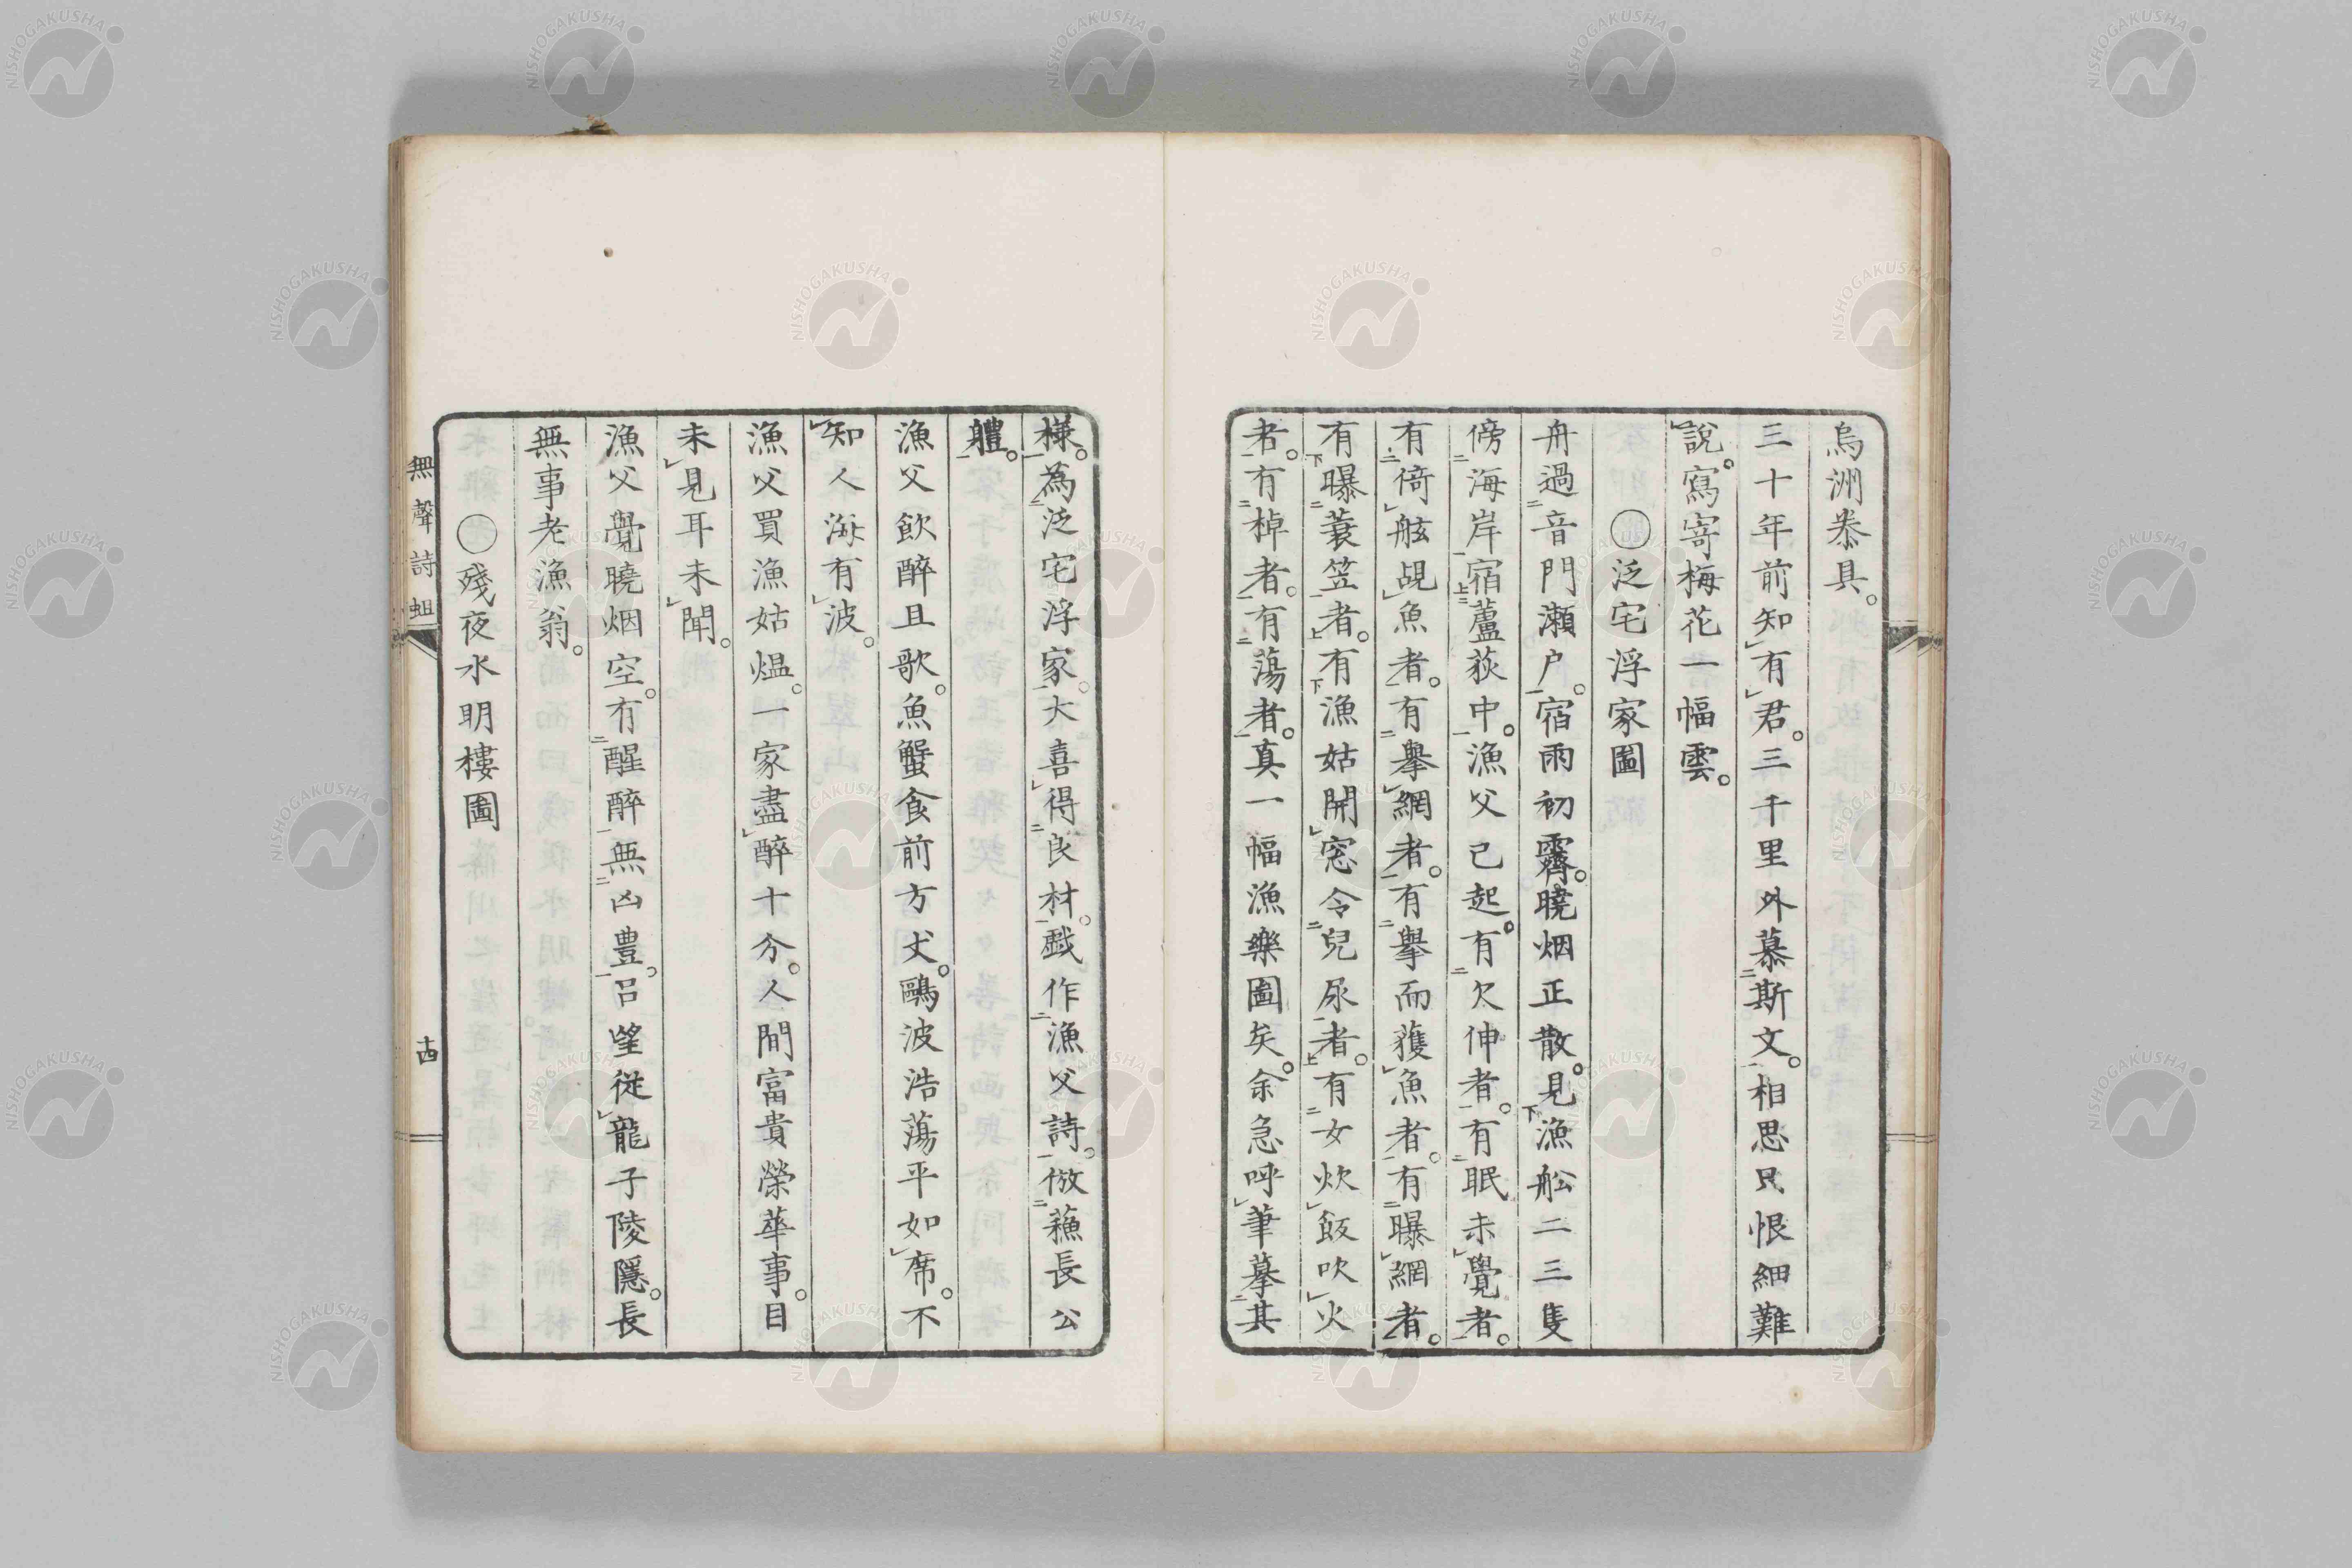 烏洲泰具。
三十年前知有君。三千里外慕斯文。相思只恨細難
說。寫寄梅花一幅雲。
○泛宅浮家圖
舟過音門瀬戶。宿雨初霽。曉烟正散。見漁舩二三隻
傍海岸宿蘆荻中。漁父已起。有欠伸者。有眠未覺者。
有倚舷覘魚者。有擧網者。有擧而獲魚者。有曝網者。
有曝蓑笠者。有漁姑開窓令兒尿者。有女炊飯吹火
者。有棹者。有蕩者。真一幅漁樂圖矣。余急呼筆摹其
樣。為泛宅浮家。大喜得良材。戯作漁父詩。倣蘓長公
軆。
漁父飲醉且歌。魚蟹食前方丈。鷗波浩蕩平如席。不
知人海有波。
漁父買漁姑煴。一家盡醉十分。人間富貴榮華事。目
未見耳未聞。
漁父覺曉烟空。有醒醉無凶豊。呂望從龍子陵隱。長
無事老漁翁。
○殘夜水明樓圖
無聲詩蛆
十四
NISHOGAKUSHA